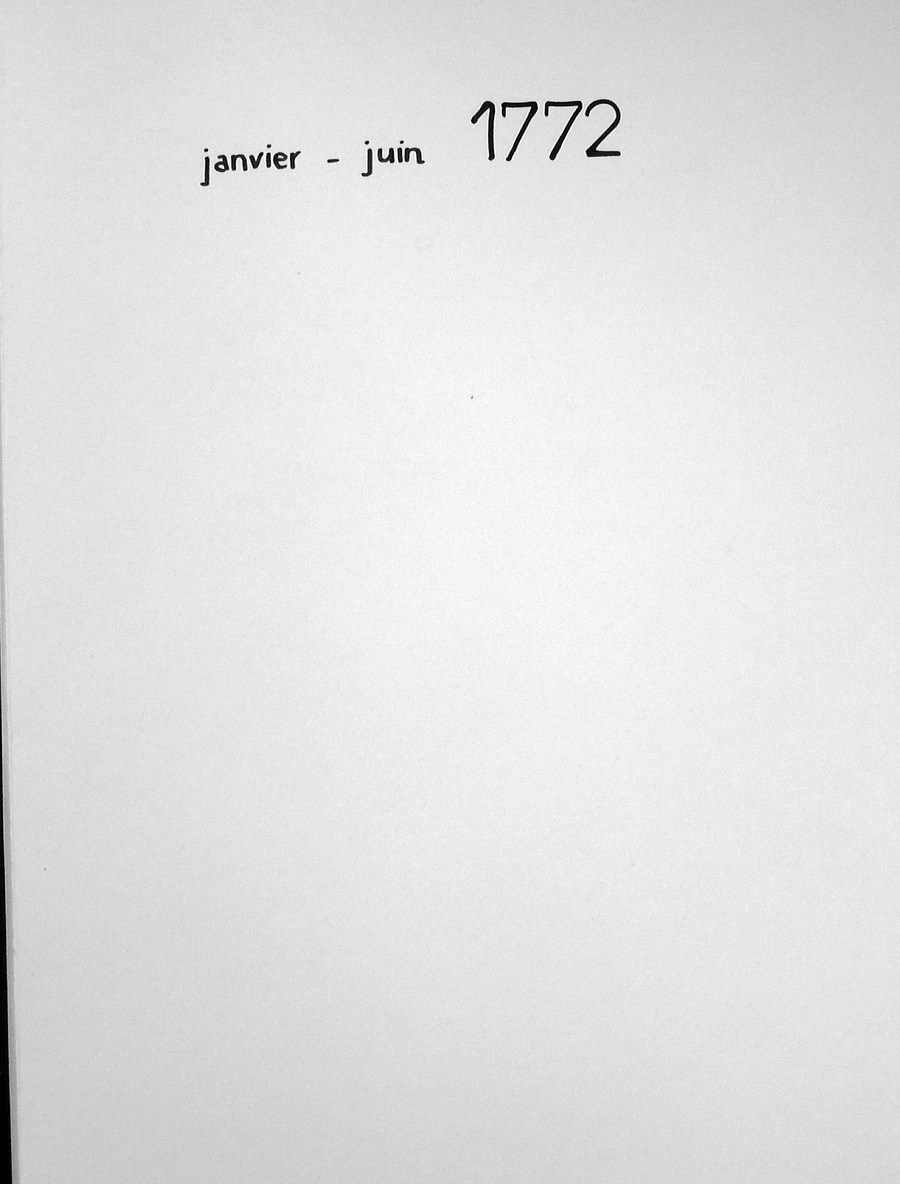 janvier - juin 1772